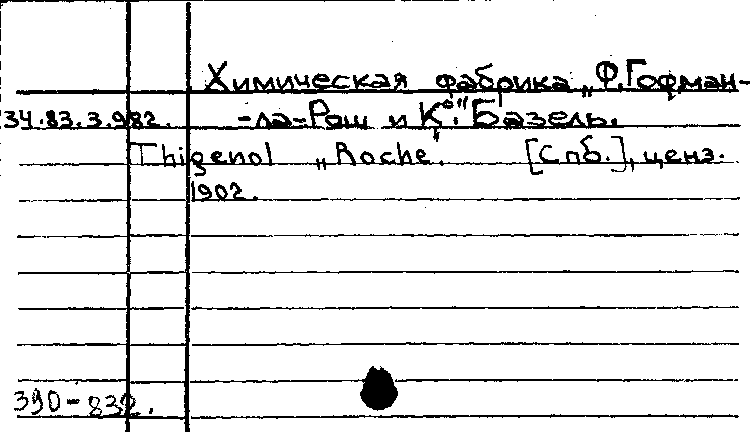 Химическая фабрика „Ф.Гофман-
34.83.3.982. -ла-Рош и К°." Базель.
Thigenol „Roche". [Спб.], ценз.
1902.
390-832.